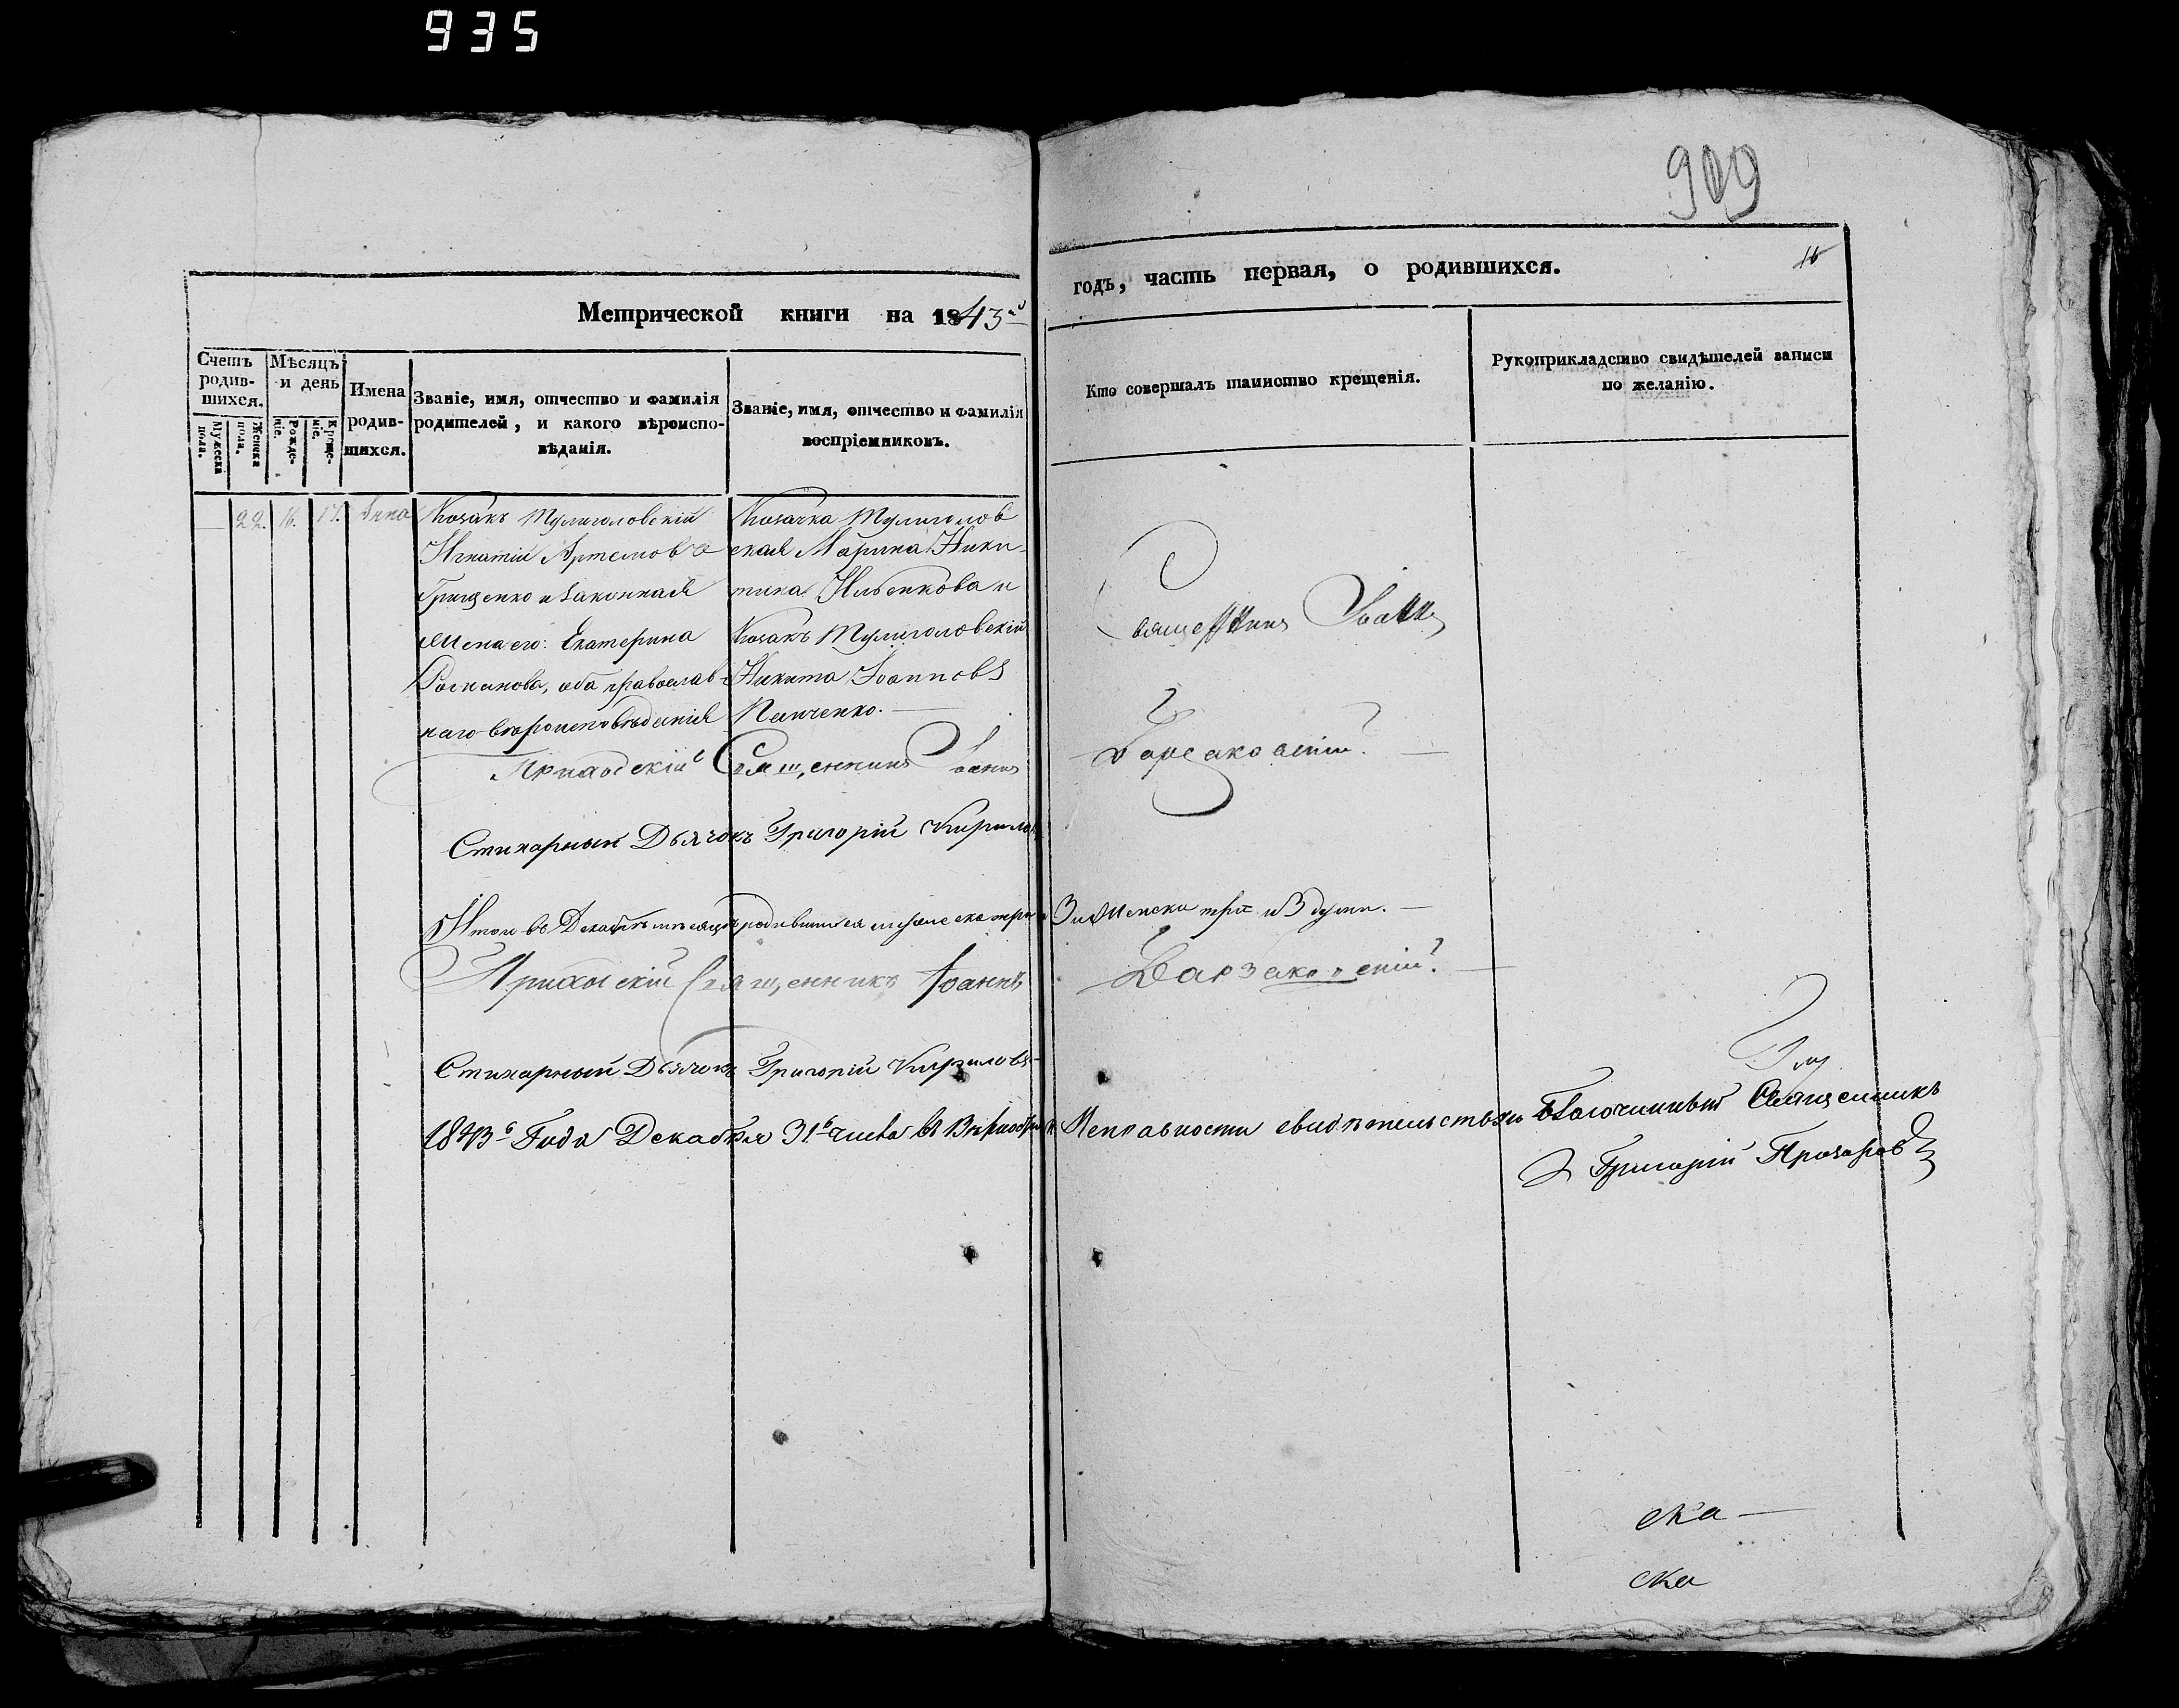 935
909
16
Метрической книги на 1843й
годъ, часть первая, о родившихся.
Счетъ родив-шихся.
Мужеска пола.
Женска пола.
Мѣсяцъ и день
Рожде-ніе.
Креще-ніе.
Имена родив-шихся.
Званіе, имя, отчество и фамилія
родителей, и какого вѣроиспо-
вѣданія.
Званіе, имя, отчество и фамилія
воспріемниковъ.
Кто совершалъ таинство крещенія.
Рукоприкладство свидѣтелей записи
по желанію.
22. 16. 17. Анна
Козакъ Тулиголовскій
Игнатій Артемовъ
Грищенко и законная
жена его: Екатерина
оба православ-
наго вѣроисповѣданія
Козачка Тулиголов
ская Марина Ники-
тина Ильенкова и
Козакъ Тулиголовскій
Никита Іоанновъ
Панченко.
Священникъ Іоаннъ
Барзаковскій
Приходскій Священникъ Іоаннъ
Стихарный Дьячокъ Григорій Кириловъ
Итого въ Декабрѣ мѣсяцѣ родившихся мужеска три и Женска три и душъ.
Приходскій Священникъ Іоаннъ Барзаковскій
Стихарный Дьячокъ Григорій Кириловъ
1843 Года Декабря 31 числа въ Вѣрности и Исправности свидѣтельствую Благочинный Священникъ
Григорій Прозоровъ
ска
ска